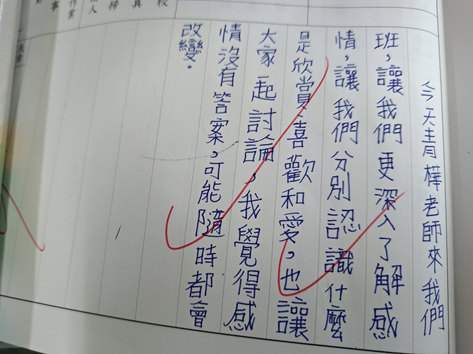 今天青樺老師來我們
班,讓我們更深入了解感
情,讓我們分別認識什麼
是欣賞、喜歡和愛,也讓
大家一起討論,我覺得感
情沒有答案,可能隨時都會
改變。